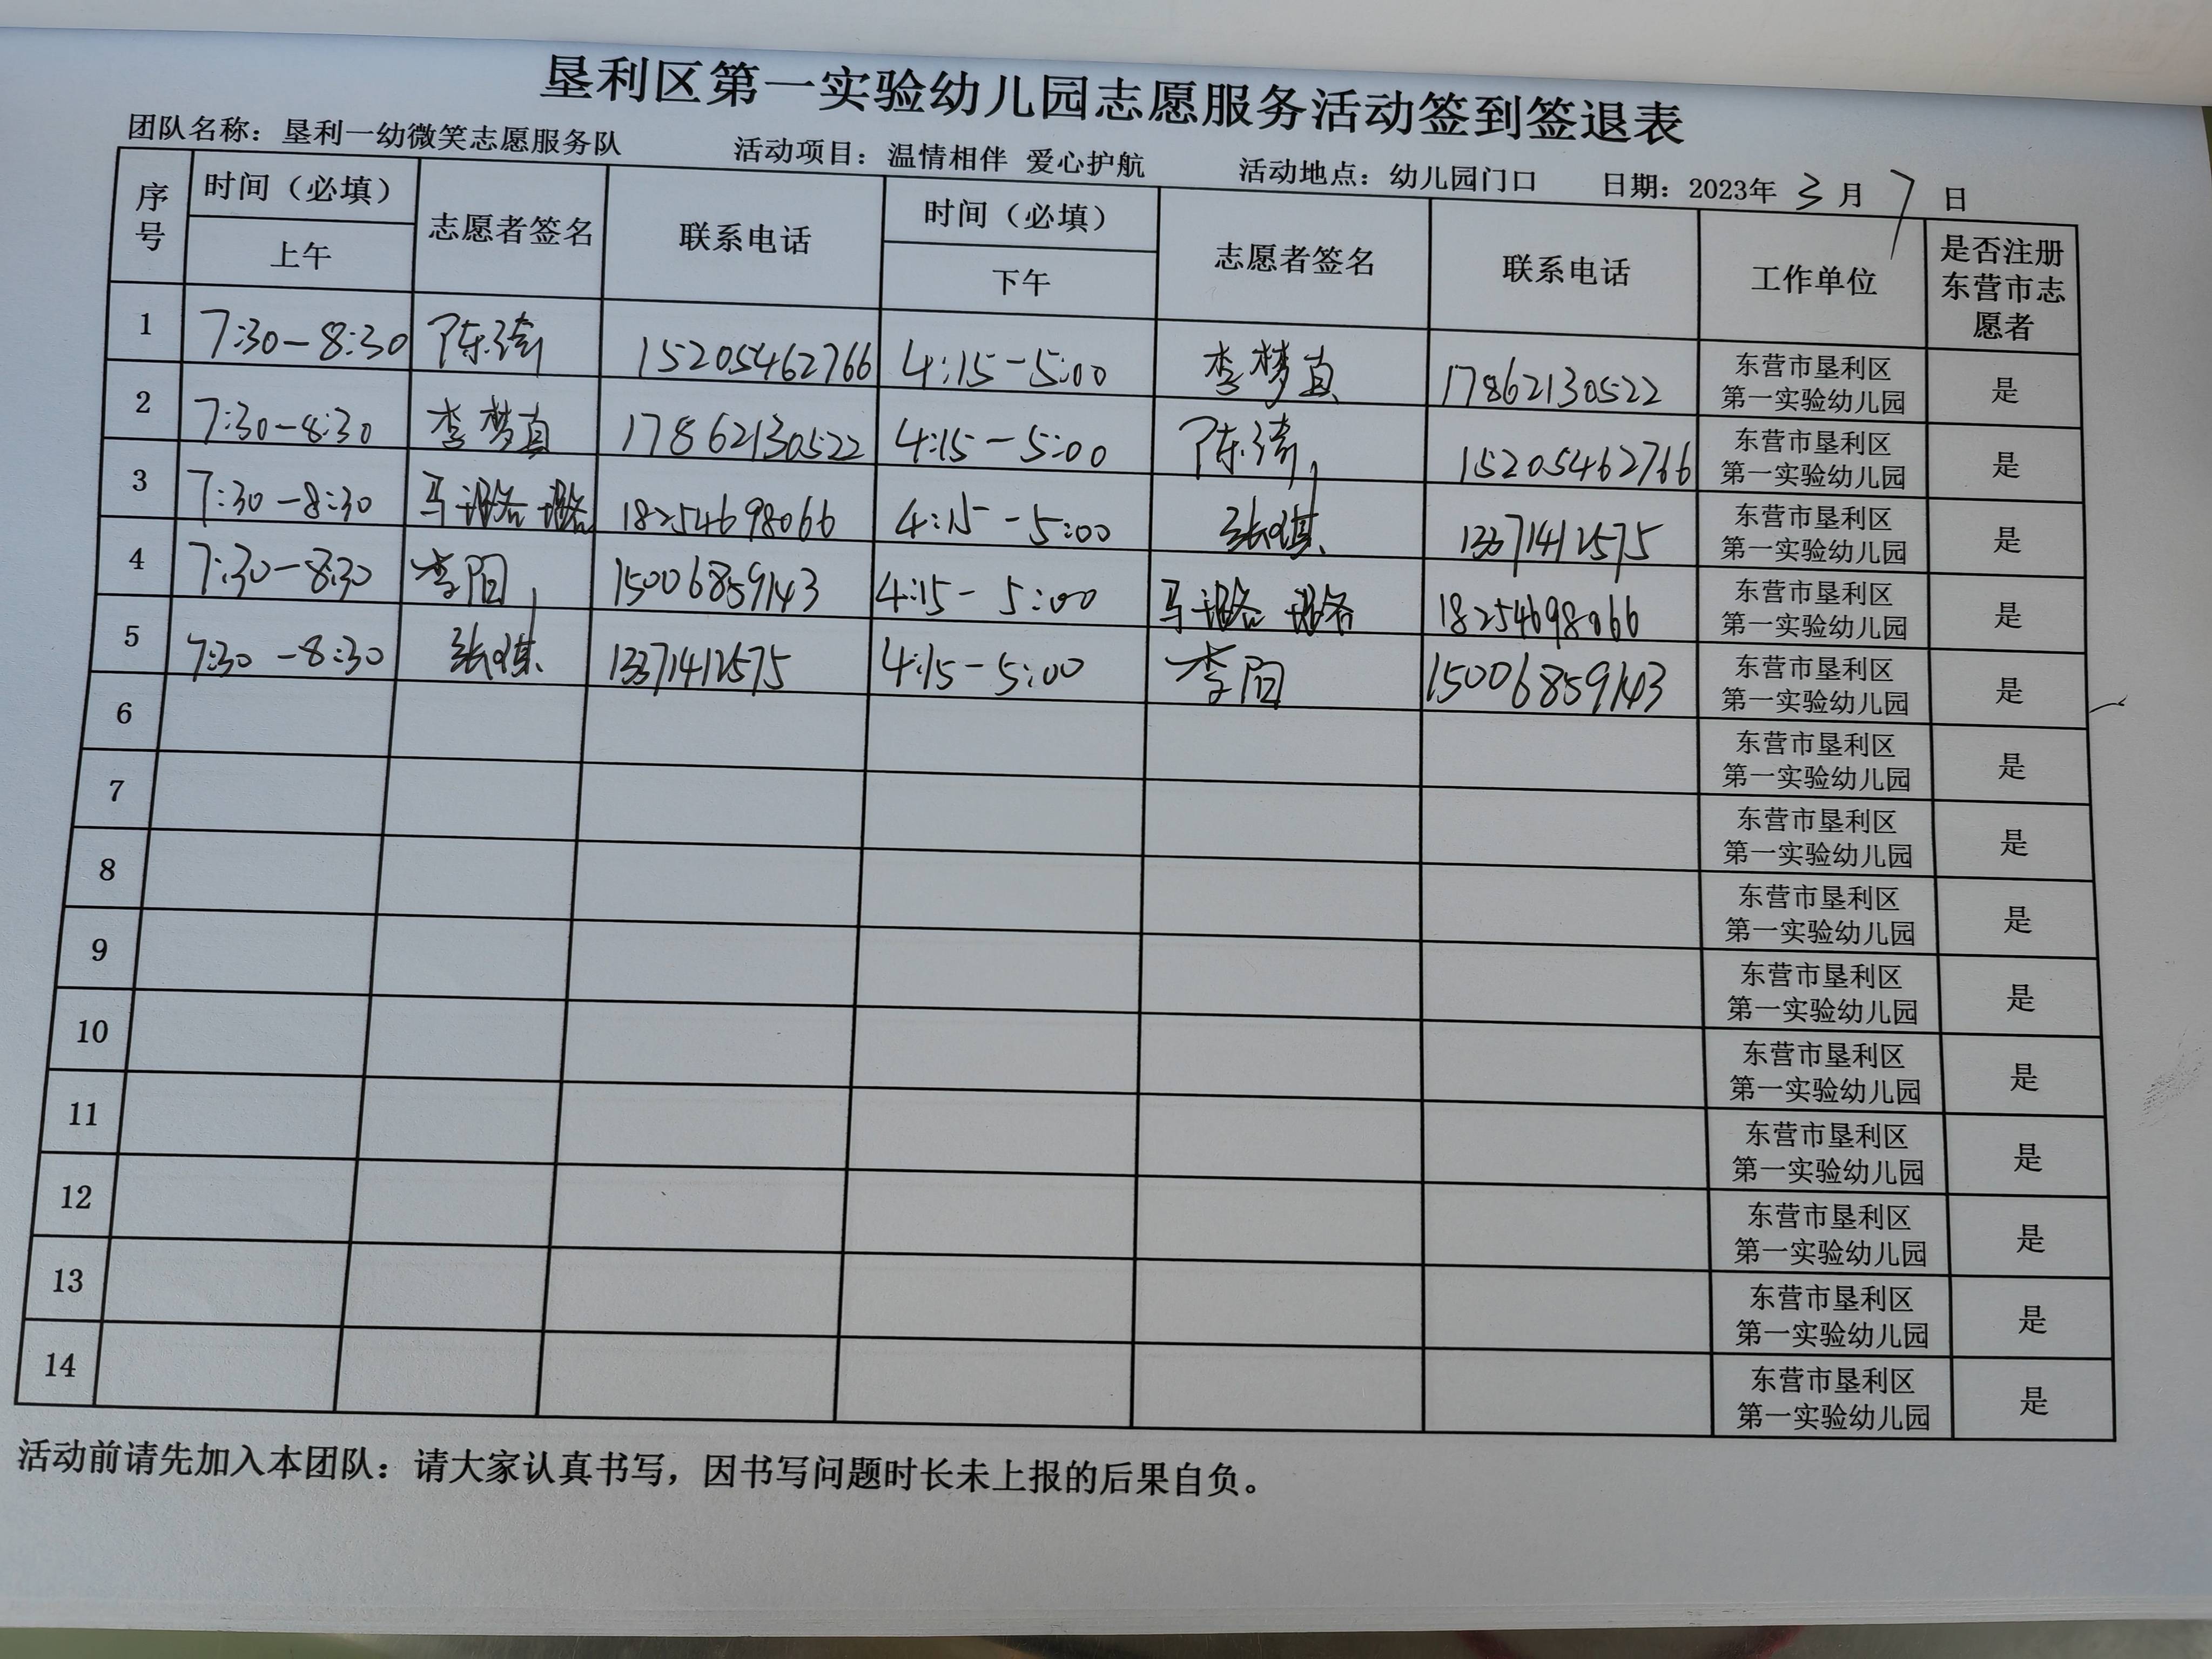 垦利区第一实验幼儿园志愿服务活动签到签退表
团队名称：垦利一幼微笑志愿服务队 活动项目：温情相伴 爱心护航 活动地点：幼儿园门口 日期：2023年 3 月 7 日
序号 时间（必填） 上午 志愿者签名 联系电话 时间（必填） 下午 志愿者签名 联系电话 工作单位 是否注册东营市志愿者
1 7:30-8:30 陈 15205462766 4:15-5:00 李梦真 17862130522 东营市垦利区第一实验幼儿园 是
2 7:30-8:30 李梦真 17862130522 4:15-5:00 陈 15205462766 东营市垦利区第一实验幼儿园 是
3 7:30-8:30 马璐璐 18254698066 4:15-5:00 张琪 13371412575 东营市垦利区第一实验幼儿园 是
4 7:30-8:30 李阳 15006859143 4:15-5:00 马璐璐 18254698066 东营市垦利区第一实验幼儿园 是
5 7:30-8:30 张琪 13371412575 4:15-5:00 李阳 15006859143 东营市垦利区第一实验幼儿园 是
6 东营市垦利区第一实验幼儿园 是
7 东营市垦利区第一实验幼儿园 是
8 东营市垦利区第一实验幼儿园 是
9 东营市垦利区第一实验幼儿园 是
10 东营市垦利区第一实验幼儿园 是
11 东营市垦利区第一实验幼儿园 是
12 东营市垦利区第一实验幼儿园 是
13 东营市垦利区第一实验幼儿园 是
14 东营市垦利区第一实验幼儿园 是
活动前请先加入本团队：请大家认真书写，因书写问题时长未上报的后果自负。